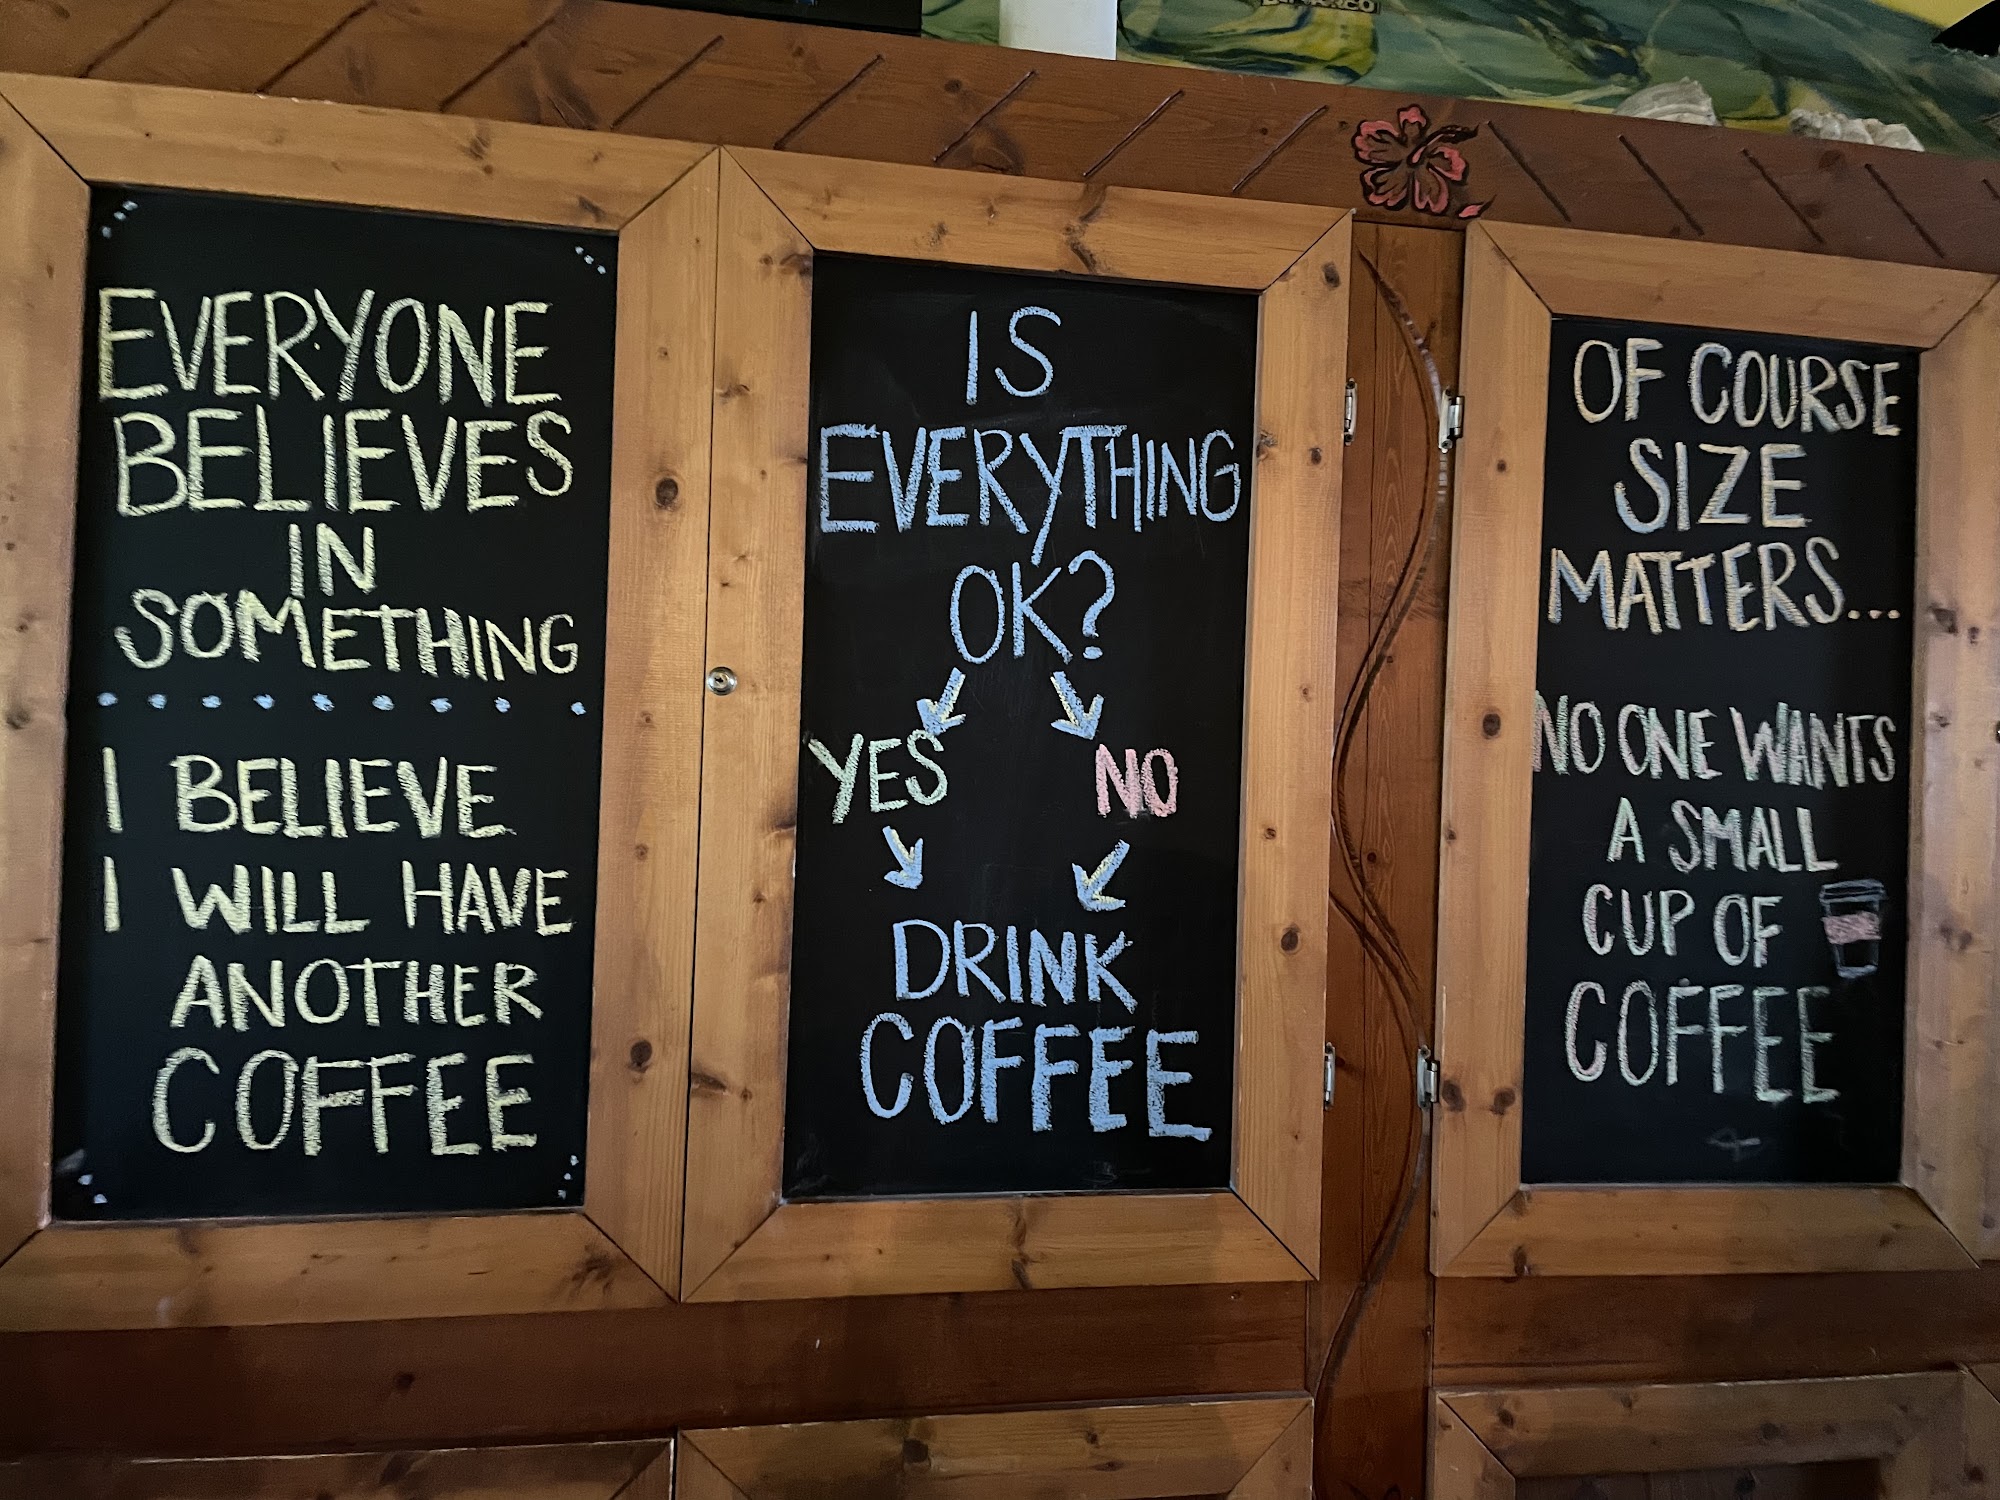 EVERYONE
BELIEVES
IN
SOMETHING
I BELIEVE
I WILL HAVE
ANOTHER
COFFEE
IS
EVERYTHING
OK?
YES NO
DRINK
COFFEE
OF COURSE
SIZE
MATTERS...
NO ONE WANTS
A SMALL
CUP OF
COFFEE